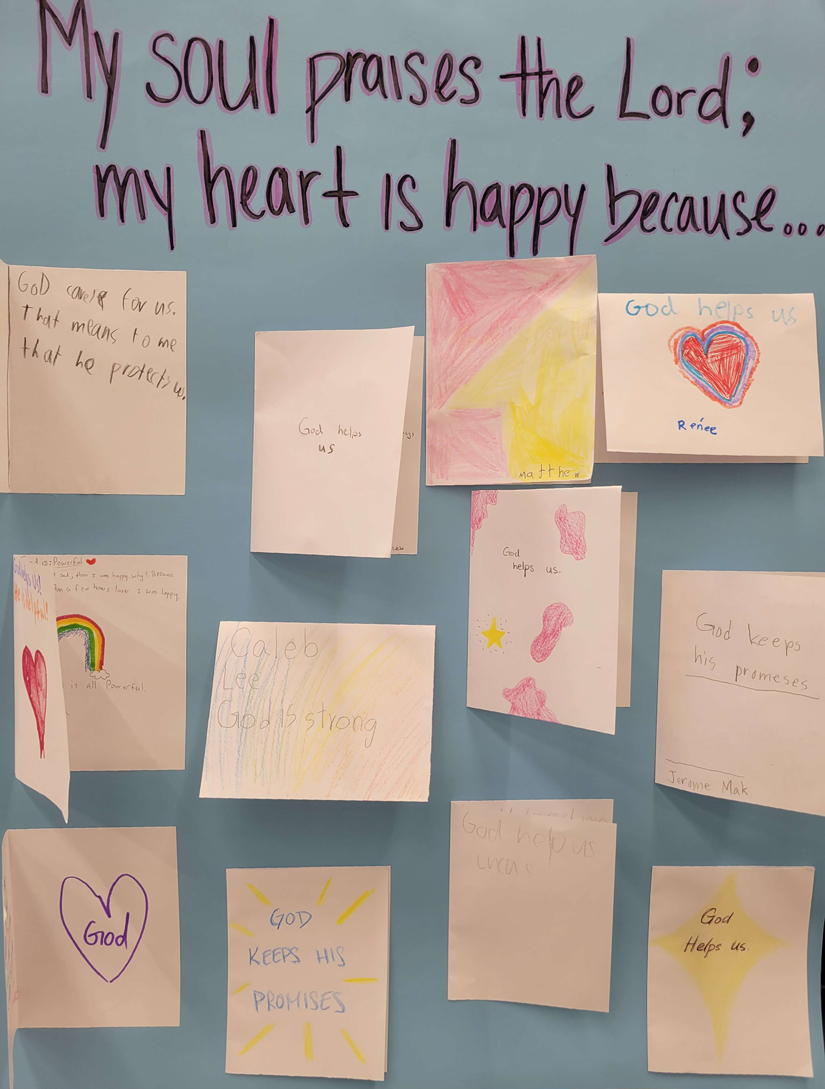 My soul praises the Lord;
my heart is happy because...
GoD cares for us.
That means to me
that he protects us.
God helps
us
Matthew
God helps us
Renée
is: Powerful
sad, then I was happy. why? Because
a few hours later I was happy.
it all Powerful.
God helps us!
He is helpful!
Caleb
Lee
God is strong
God
helps us.
God keeps
his promeses
Jerome Mak
God
GOD
KEEPS HIS
PROMISES
God help us
Lucas
God
Helps us.